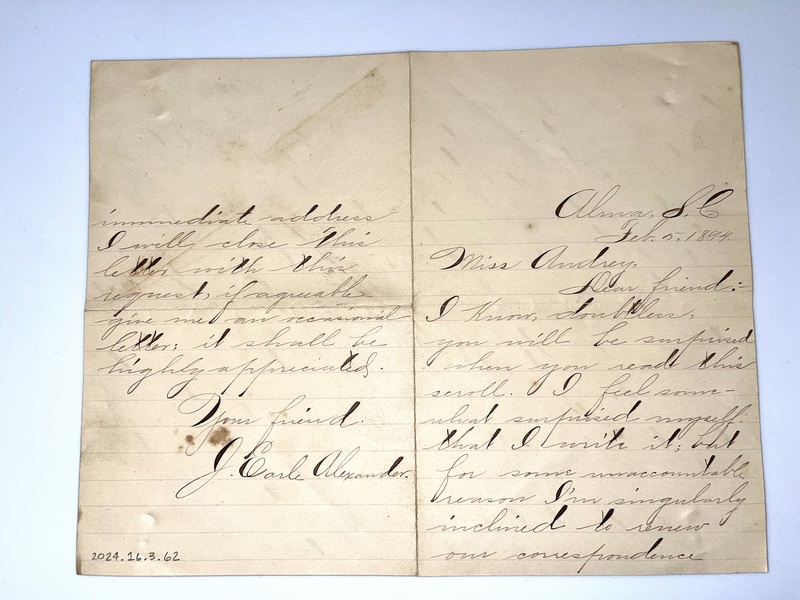 Alma, S.C
Feb. 5, 1894.
Miss Audrey,
Dear friend:-
I know, doubtless,
you will be surprised
when you read this
scroll. I feel some-
what surprised myself
that I write it; but
for some unaccountable
reason I'm singularly
inclined to renew
our correspondence
immediate address
I will close this
letter with this
request, if agreeable
give me an occasional
letter; it shall be
highly appreciated.
Your friend.
J. Earle Alexander.
2024.16.3.62